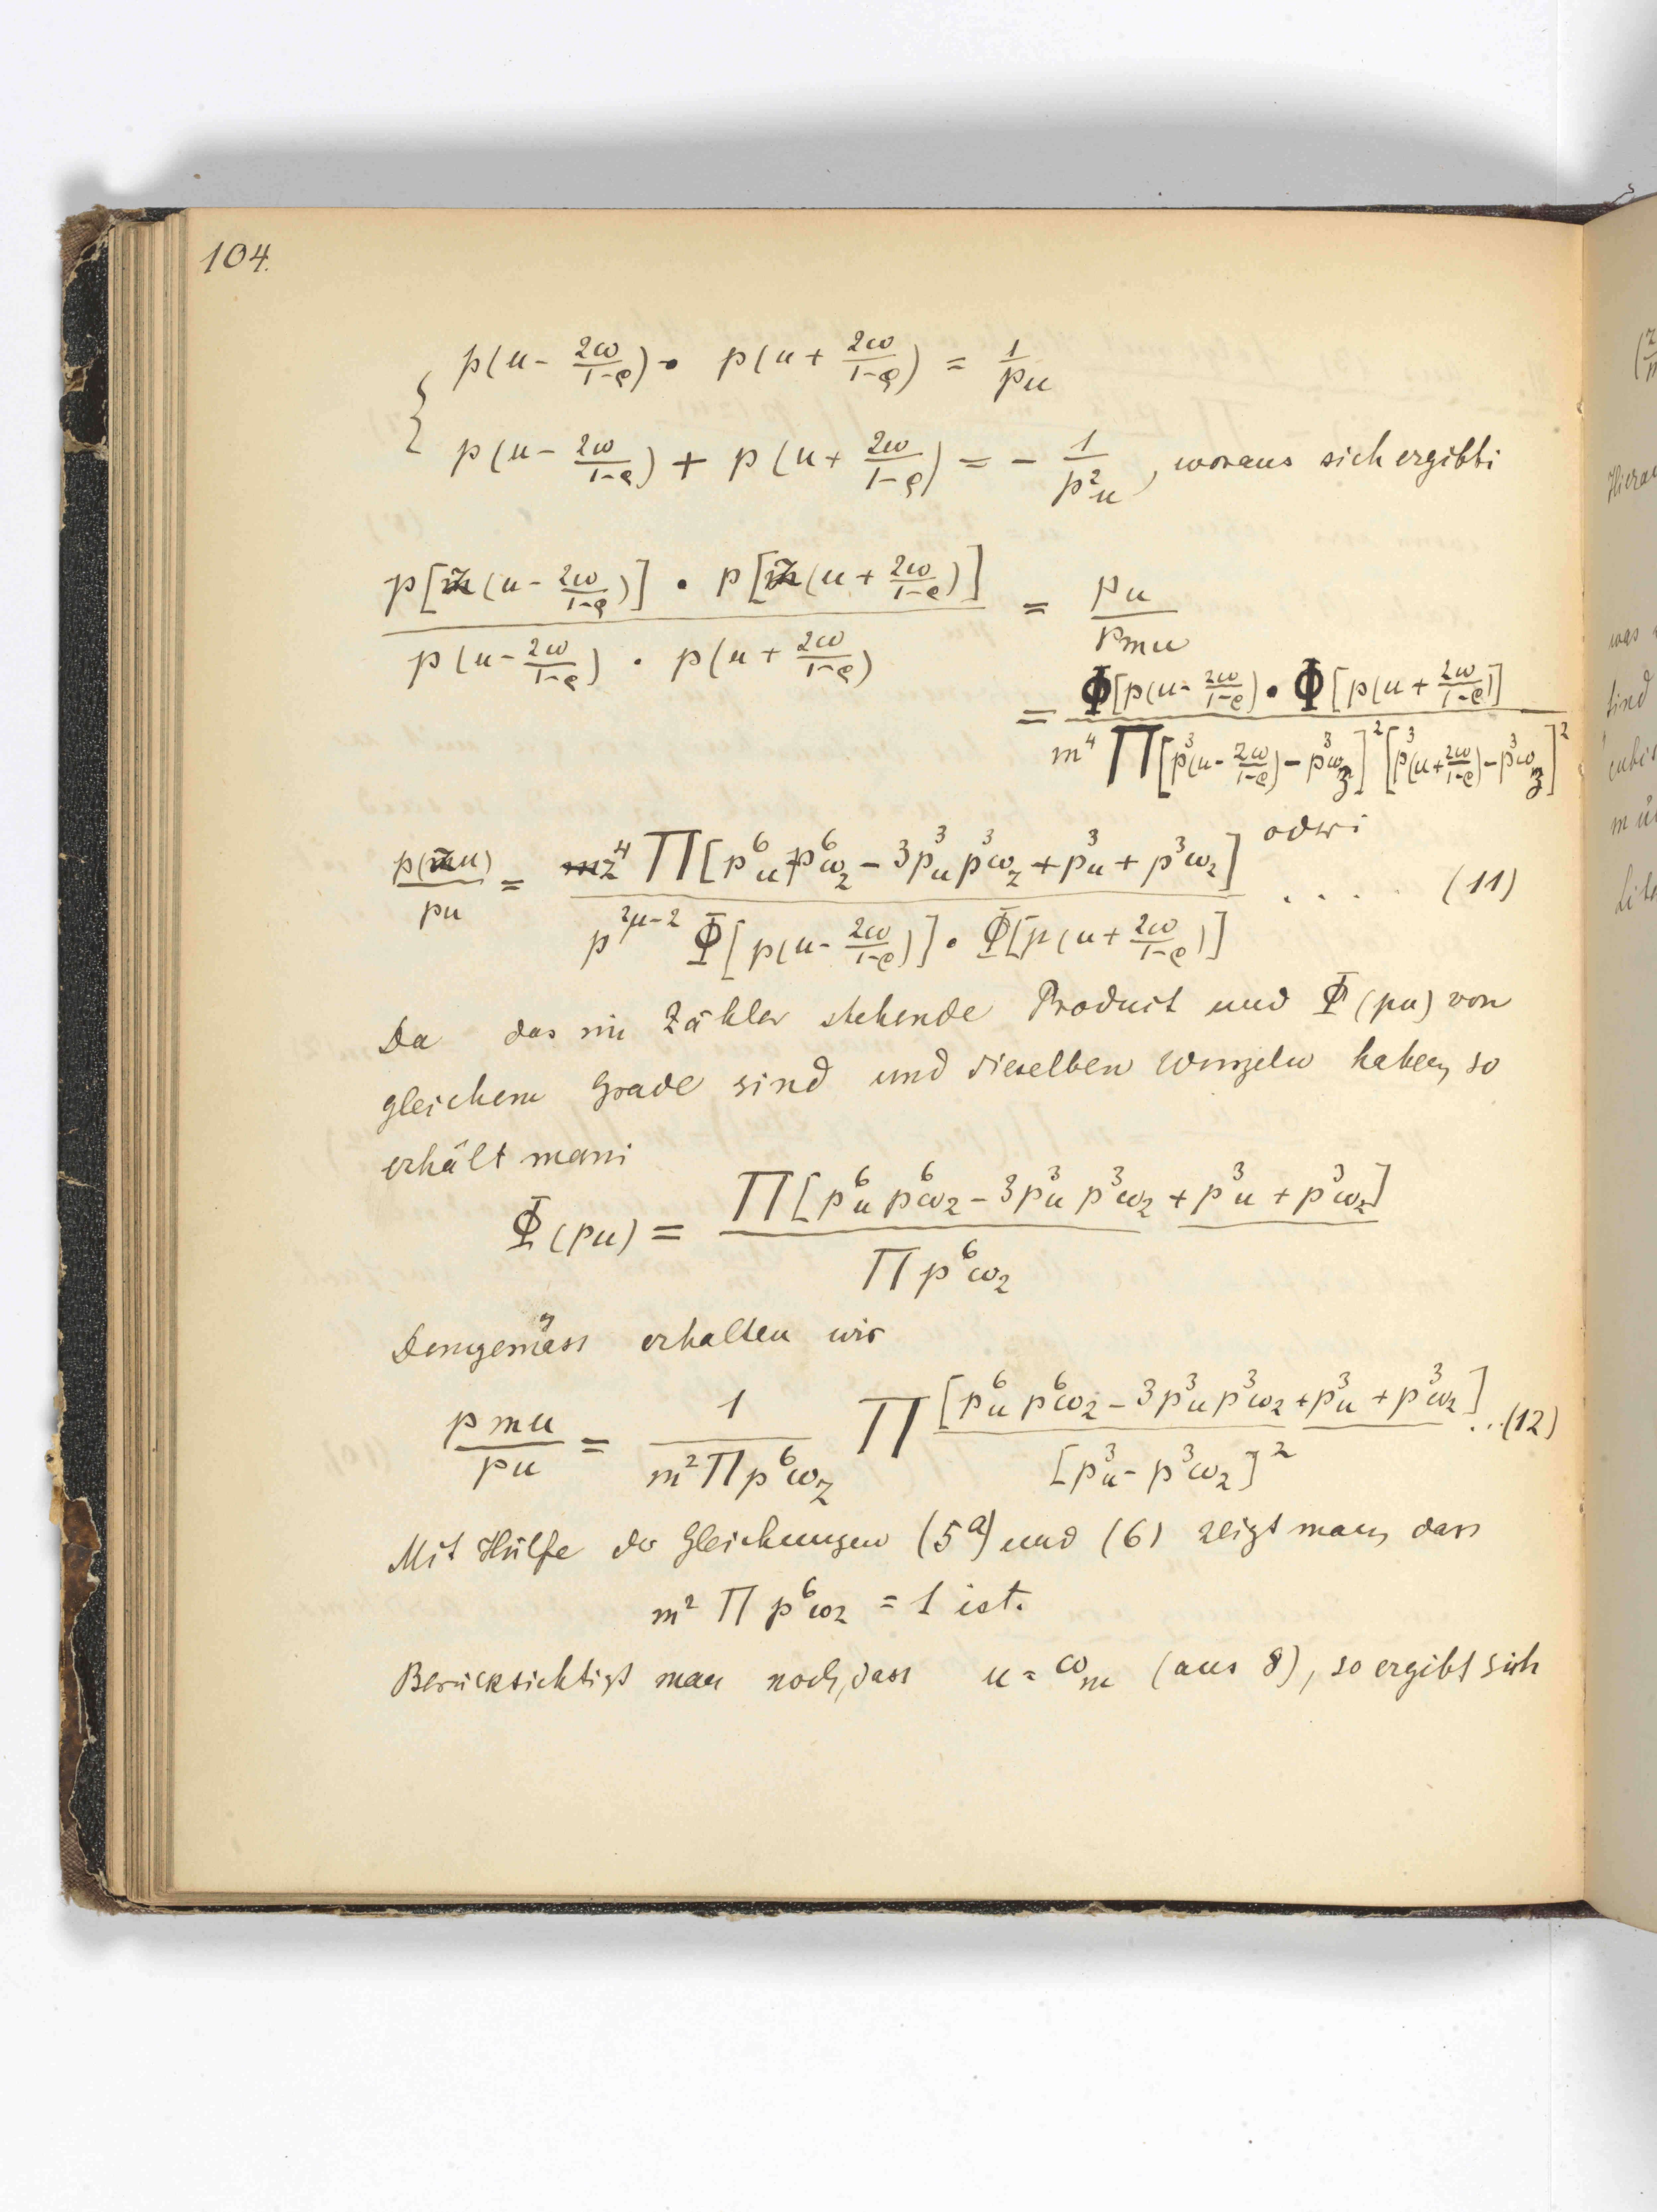 104.
p(u - 2ω/(1-ρ)) · p(u + 2ω/(1-ρ)) = 1/pu
p(u - 2ω/(1-ρ)) + p(u + 2ω/(1-ρ)) = - 1/p²u, woraus sich ergibt:
p[m(u - 2ω/(1-ρ))] · p[m(u + 2ω/(1-ρ))] / p(u - 2ω/(1-ρ)) · p(u + 2ω/(1-ρ)) = pu/pmu
= Φ[p(u - 2ω/(1-ρ)) · Φ[p(u + 2ω/(1-ρ))] / m⁴ ∏[p³(u - 2ω/(1-ρ)) - p³ω₃]² [p³(u + 2ω/(1-ρ)) - p³ω₃]²
oder:
p(mu)/pu = z⁴ ∏[p⁶u p⁶ω₂ - 3p³u p³ω₂ + p³u + p³ω₂] / p^(2μ-2) Φ[p(u - 2ω/(1-ρ))] · Φ[p(u + 2ω/(1-ρ))] . . . . (11)
Da das im Zähler stehende Product und Φ(pu) von
gleichem Grade sind und dieselben Wurzeln haben, so
erhält man:
Φ(pu) = ∏[p⁶u p⁶ω₂ - 3p³u p³ω₂ + p³u + p³ω₂] / ∏p⁶ω₂
Demgemäss erhalten wir
pmu/pu = 1/(m²∏p⁶ω₂) ∏ [p⁶u p⁶ω₂ - 3p³u p³ω₂ + p³u + p³ω₂] / [p³u - p³ω₂]² ..(12)
Mit Hülfe der Gleichungen (5a) und (6) zeigt man, dass
m² ∏ p⁶ω₂ = 1 ist.
Berücksichtigt man noch, dass u = ωₘ (aus 8), so ergibt sich